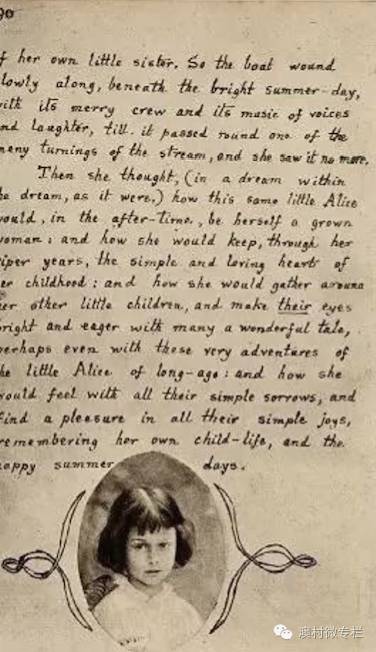 90
f her own little sister. So the boat wound
lowly along, beneath the bright summer-day,
ith its merry crew and its music of voices
nd laughter, till it passed round one of the
many turnings of the stream, and she saw it no more.
Then she thought, (in a dream within
he dream, as it were,) how this same little Alice
would, in the after-time, be herself a grown
woman: and how she would keep, through her
riper years, the simple and loving heart of
er childhood: and how she would gather around
her other little children, and make their eyes
bright and eager with many a wonderful tale,
perhaps even with these very adventures of
he little Alice of long-ago: and how she
would feel with all their simple sorrows, and
find a pleasure in all their simple joys,
remembering her own child-life, and the
happy summer days.
澳村微专栏